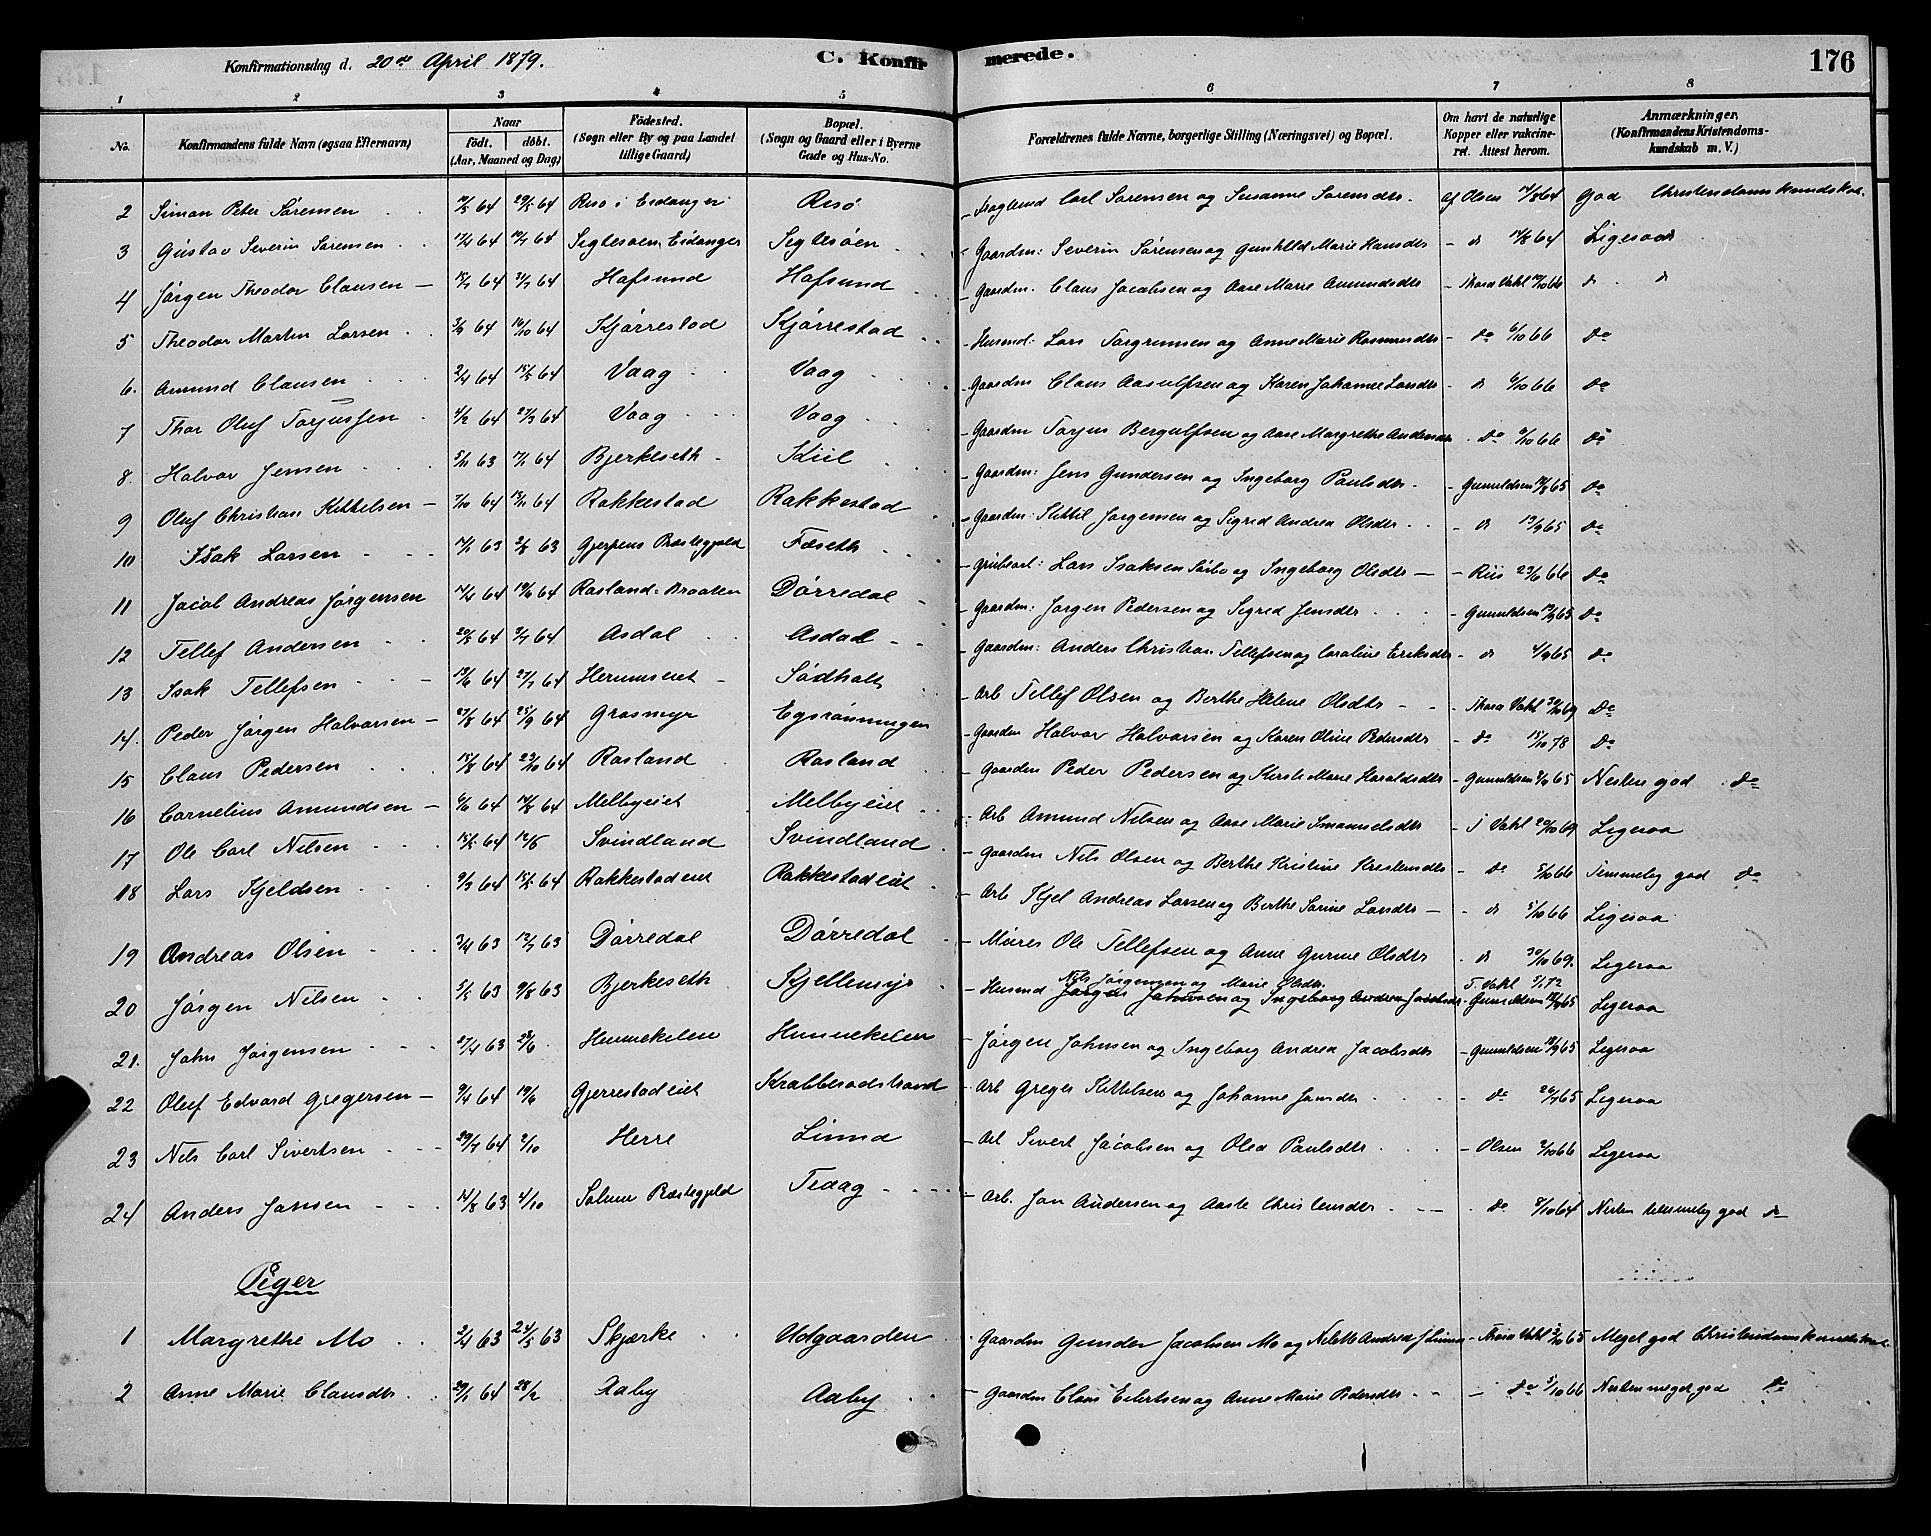 Konfirmationsdag d. 20de April 1879. C. Konfirmerede. 176
1 2 3 4 5 6 7 8
No. Konfirmandens fulde Navn (ogsaa Efternavn) Naar født. døbt. (Aar, Maaned og Dag) Födested. (Sogn eller By og paa Landet tillige Gaard) Bopæl. (Sogn og Gaard eller i Byerne Gade og Hus-No. Forældrenes fulde Navne, borgerlige Stilling (Næringsvei) og Bopæl. Om havt de naturlige Kopper eller vakcineret. Attest herom. Anmærkninger. (Konfirmandens Kristendomskundskab m. V.)
2 Simon Peter Sørensen 64 29/5 64 Risø i Eidanger Risø Carl Sørensen og Susanne Sørensdtr. Olsen 64 God Christendomskundskab
3 Gustav Severin Sørensen 64 64 Segtesøen Eidanger Segtesøen Gaardm: Severin Sørensen og Gunhild Marie Hansdtr 64 Ligesaa
4 Jørgen Theodor Clausen 64 64 Hafsund Hafsund Gaardm. Claus Jacobsen og Aase Marie Amundsdtr Thora Vahl 66
5 Theodor Martin Larsen 64 16/10 64 Kjørrestad Kjørrestad Husmd: Lars Torgrimsen og Anne Marie Rasmusdtr Do 6/10 66 Do
6. Amund Clausen 2/4 64 15/5 64 Vaag Vaag Gaardm Claus Aasulfsen og Karen Johanne Larsdtr 6/10 66 Do
7 Thor Oluf Torjussen 4/2 64 27/3 64 Vaag Vaag Gaardm Torjus Bergulfsen og Aase Margrethe Andersdtr Do 6/10 66 Do
8. Halvor Jensen 5/11 63 64 Bjerkeseth Kiil Gaardm: Jens Gundersen og Ingeborg Paulsdtr. Gunuldsen 65 Do
9 Oluf Christian Kittelsen 64 Rakkestad Rakkestad Gaardm: Kittil Jørgensen og Sigrid Andrea Olsdtr 19/9 65 Do
10 Isak Larsen 63 63 Gjerpens Præstegjeld Fæseth Lars Isaksen Sørbø og Ingeborg Olsdtr Riis 23/6 66 Do
11 Jacob Andreas Jørgensen 64 19/6 64 Rasland-Braaten Dørredal Gaardm: Jørgen Pedersen og Sigrid Jensdtr Gunuldsen 65 Do
12 Tellef Andersen 29/5 64 3/7 64 Asdal Asdal Gaardm: Anders Christian Tellefsen og Caroline Eriksdtr 4/9 65 Do
13 Isak Tellefsen 64 64 Hermuseiet Sødholt Arb Tellef Olsen og Berthe Helene Olsdtr Thora Vahl 69 Do
14. Peder Jørgen Halvorsen 27/8 64 25/9 64 Grasmyr Egsrønningen Gaardm Halvor Halvorsen og Karen Oline Pedersdtr Do 15/10 78 Do
15 Claus Pedersen 64 23/10 64 Rasland Rasland Gaardm Peder Pedersen og Kirsti Marie Haraldsdtr Gunuldsen 65 Nesten god Do
16 Cornelius Amundsen 64 64 Melbyeiet Melbyeiet Arb Amund Nilsen og Aase Marie Smanuelsdtr T Vahl 20/10 69 Ligesaa
17 Ole Carl Nilsen 15/5 64 Svindland Svindland Gaardm Nils Olsen og Berthe Kristine Kristensdtr Do 5/10 66 Temmelig god Do
18 Lars Kjeldsen 9/3 64 15/5 64 Rakkestadeiet Rakkestadeiet Arb Kjel Andreas Larsen og Berthe Sørine Larsdtr 5/10 66 Ligesaa
19 Andreas Olsen 3/4 63 63 Dørredal Dørredal Murer Ole Tellefsen og Anne Gurine Olsdtr 30/10 69. Ligesaa
20 Jørgen Nilsen 5/5 63 9/8 63 Bjerkeseth Kjellemyr Husmd Nils Jørgensen og Marie Olsdtr. Jørgen Johnsen og Ingeborg Andrea Jacobsdtr T. Vahl 72 Gunuldsen 65 Ligesaa
21. John Jørgensen 27/4 63 Hummekelen Hummekelen Jørgen Johnsen og Ingeborg Andrea Jacobsdtr Gunuldsen 65 Ligesaa
22 Oluf Edvard Gregersen 9/4 64 19/6 Gjerrestadeiet Krabberødstrand Arb Greger Kittelsen og Johanne Jensdtr Do 65 Ligesaa
23 Nils Carl Sivertsen 29/7 64 2/10 Herre Linna Arb Sivert Jacobsen og Olea Paulsdtr Olsen 2/10 66 Ligesaa
24 Anders Jansen 14/8 63 4/10 Solum Præstegjeld Traag Arb. Jan Andersen og Aaste Christensdtr Do 8/10 64 Nesten temmelig god Do
Piger
1 Margrethe Mo 3/4 63 24/5 63 Skjerke Udgaarden Gaardm Gunder Jacobsen Mo og Andrea Thora Vahl 65 Meget god Christendomskundskab
2 Anne Marie Clausdtr. 29/1 64 28/2 Aaby Aaby Gaardm Claus Eilertsen og Anne Marie Pedersdtr Do 5/10 66 Nesten meget god Do